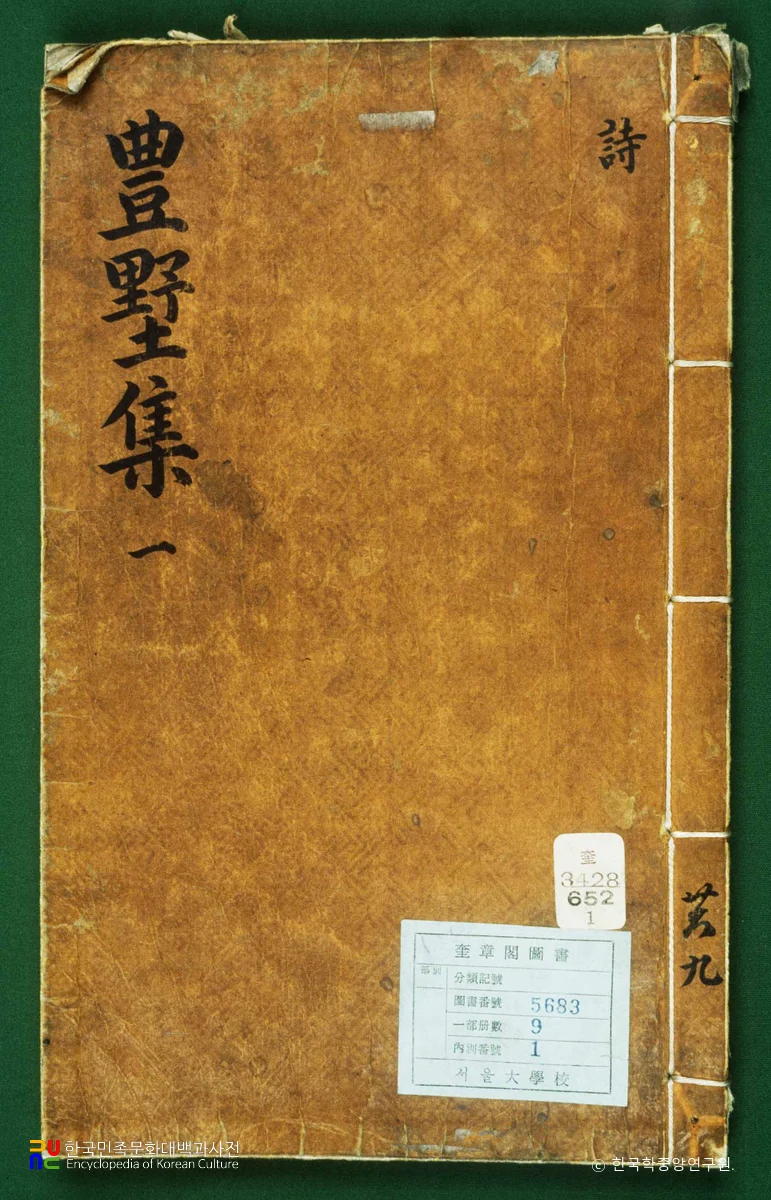 詩
豊墅集 一
共九
奎
3428
652
1
奎章閣圖書
部別
分類記號
圖書番號 5683
一部册數 9
內別番號 1
서울大學校
한국민족문화대백과사전
Encyclopedia of Korean Culture
© 한국학중앙연구원.